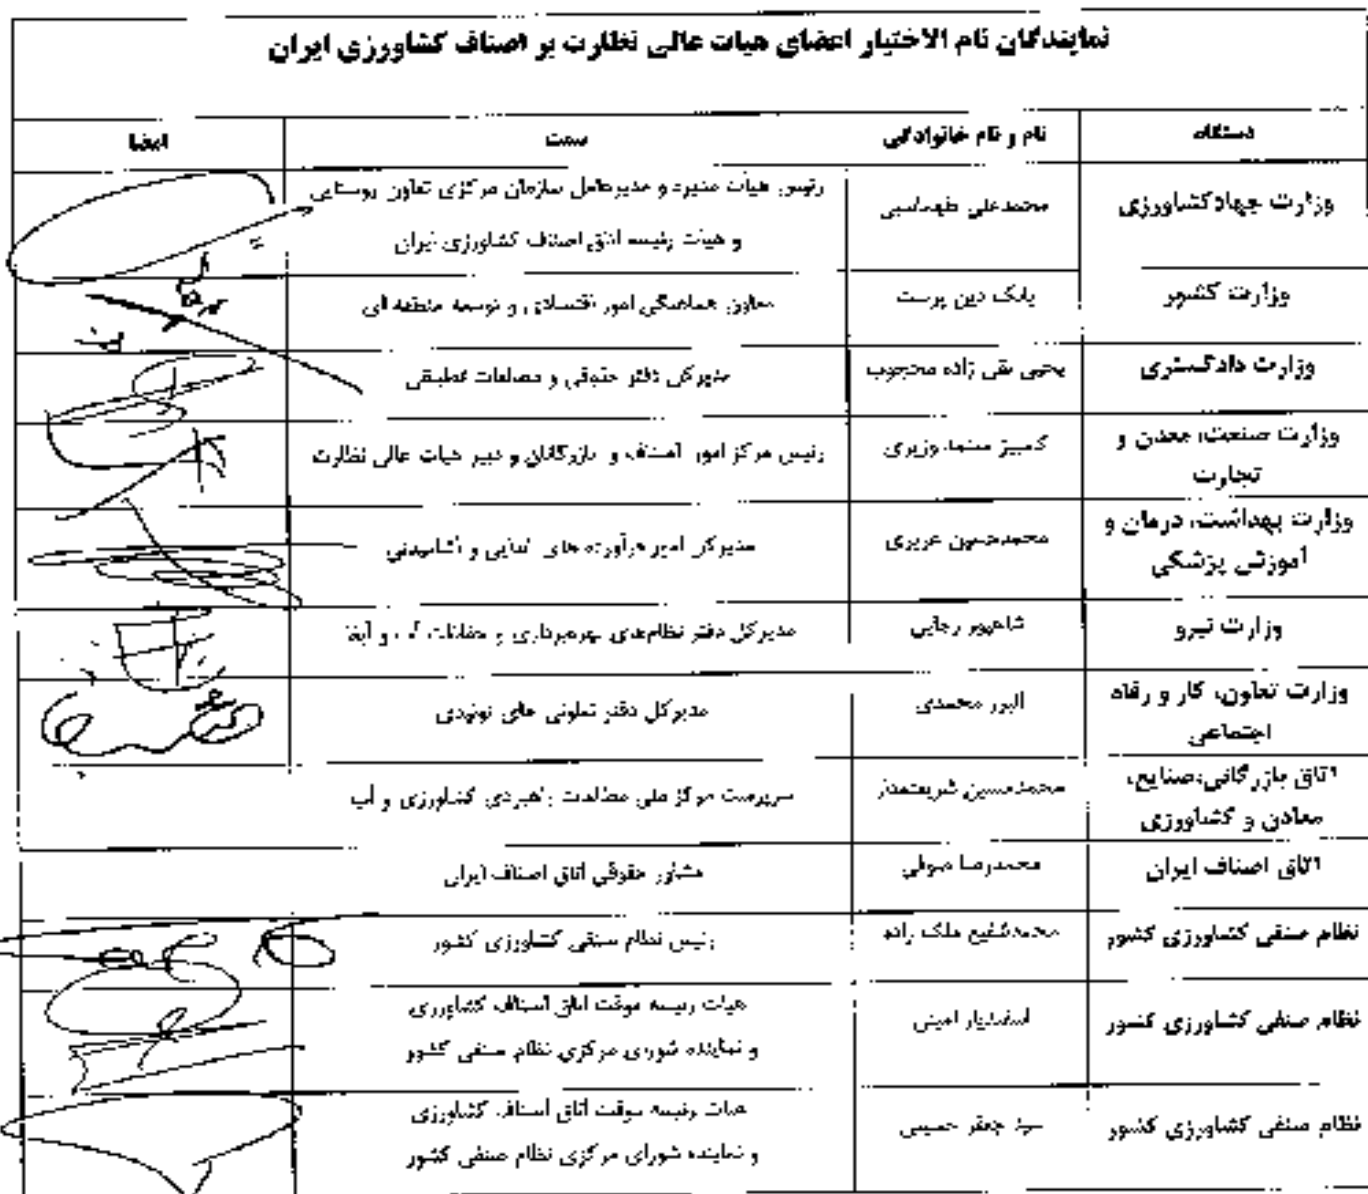 نمایندگان تام الاختیار اعضای هیات عالی نظارت بر اصناف کشاورزی ایران
دستگاه
نام و نام خانوادگی
سمت
امضا
وزارت جهادکشاورزی
محمدعلی طهماسبی
رئیس هیات مدیره و مدیرعامل سازمان مرکزی تعاون روستایی
و هیات رئیسه اتاق اصناف کشاورزی ایران
وزارت کشور
بابک دین پرست
معاون هماهنگی امور اقتصادی و توسعه منطقه ای
وزارت دادگستری
یحیی نقی زاده محجوب
مدیرکل دفتر حقوقی و مطالعات تطبیقی
وزارت صنعت، معدن و
تجارت
کامبیز معتمد وزیری
رئیس مرکز امور اصناف و بازرگانان و دبیر هیات عالی نظارت
وزارت بهداشت، درمان و
آموزش پزشکی
محمدحسین عزیزی
مدیرکل امور فرآورده های غذایی و آشامیدنی
وزارت نیرو
شاهپور رجایی
مدیرکل دفتر نظام‌های بهره‌برداری و حفاظت آب و آبفا
وزارت تعاون، کار و رفاه
اجتماعی
البرز محمدی
مدیرکل دفتر تعاونی های تولیدی
اتاق بازرگانی،صنایع،
معادن و کشاورزی
محمدحسین شریعتمدار
سرپرست مرکز ملی مطالعات راهبردی کشاورزی و آب
اتاق اصناف ایران
محمدرضا
مشاور حقوقی اتاق اصناف ایران
نظام صنفی کشاورزی کشور
محمدشفیع ملک زاده
رئیس نظام صنفی کشاورزی کشور
نظام صنفی کشاورزی کشور
اسفندیار امینی
هیات رئیسه موقت اتاق اصناف کشاورزی
و نماینده شورای مرکزی نظام صنفی کشور
نظام صنفی کشاورزی کشور
سید جعفر حسینی
هیات رئیسه موقت اتاق اصناف کشاورزی
و نماینده شورای مرکزی نظام صنفی کشور